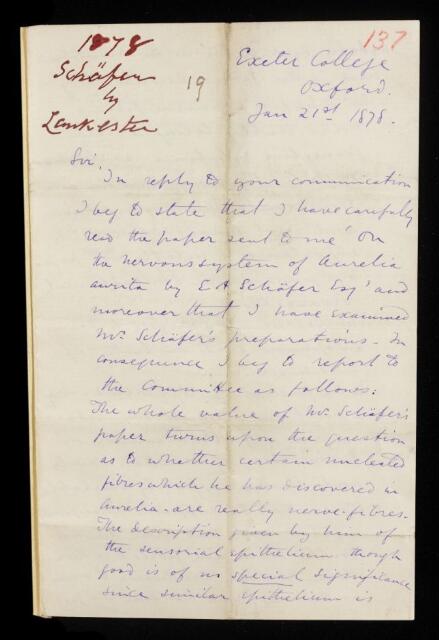 1878
Schäfer
by
Lankester
19
137
Exeter College
Oxford.
Jan 21st 1878.
Sir.
In reply to your communication
I beg to state that I have carefully
read the paper sent to me "On
the nervous system of Aurelia
aurita by E A Schäfer Esq" and
moreover that I have examined
Mr. Schäfer's preparations. In
consequence I beg to report to
the Committee as follows:
The whole value of Mr Schäfer's
paper turns upon the question
as to whether certain nucleated
fibres which he has discovered in
Aurelia are really nerve-fibres.
The description given by him of
the sensorial epithelium though
good is of no special significance
since similar epithelium is